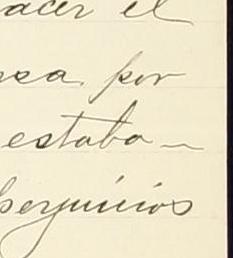 acer el
nsa por
estaba—
perjuicios